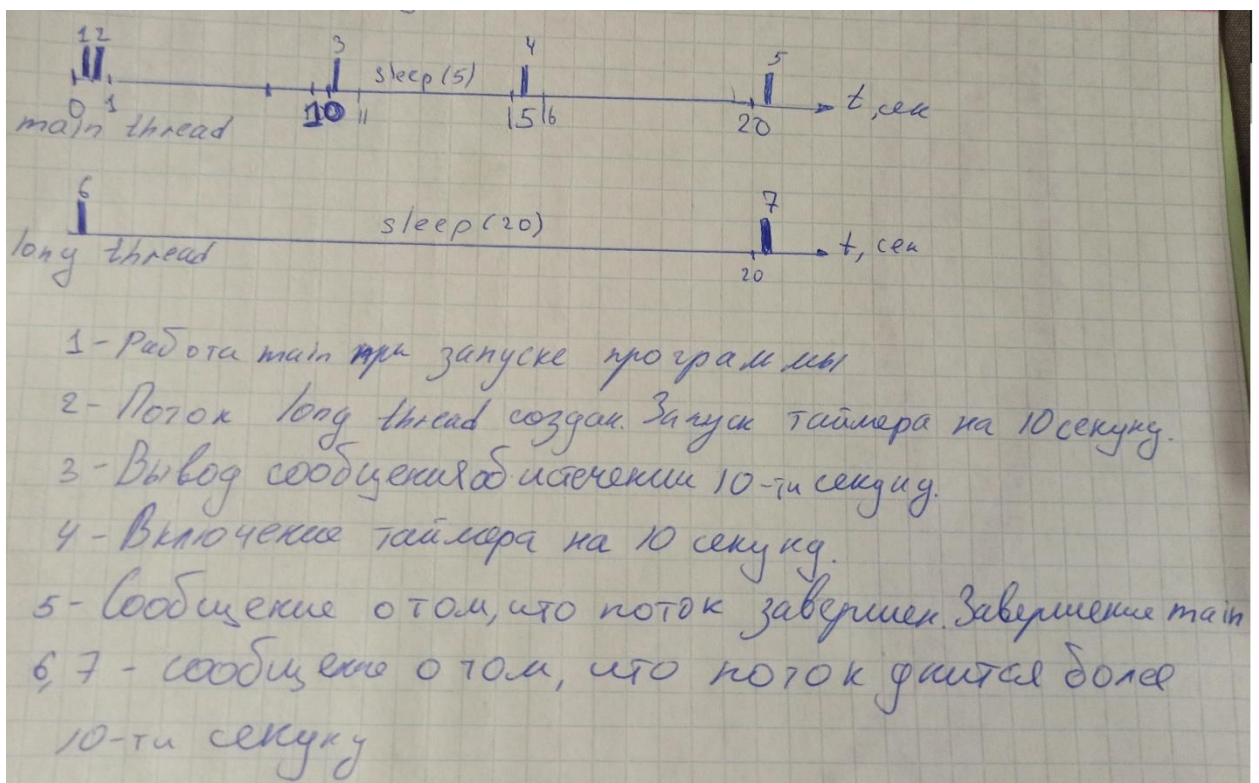 1 2 3 4 5
sleep(5)
0 1 10 11 15 16 20 t, сек
main thread
6 7
sleep(20)
long thread 20 t, сек
1 - Работа main при запуске программы
2 - Поток long thread создан. Запуск таймера на 10 секунд.
3 - Вывод сообщения об истечении 10-ти секунд.
4 - Включение таймера на 10 секунд.
5 - Сообщение о том, что поток завершен. Завершение main
6, 7 - сообщение о том, что поток длится более
10-ти секунд